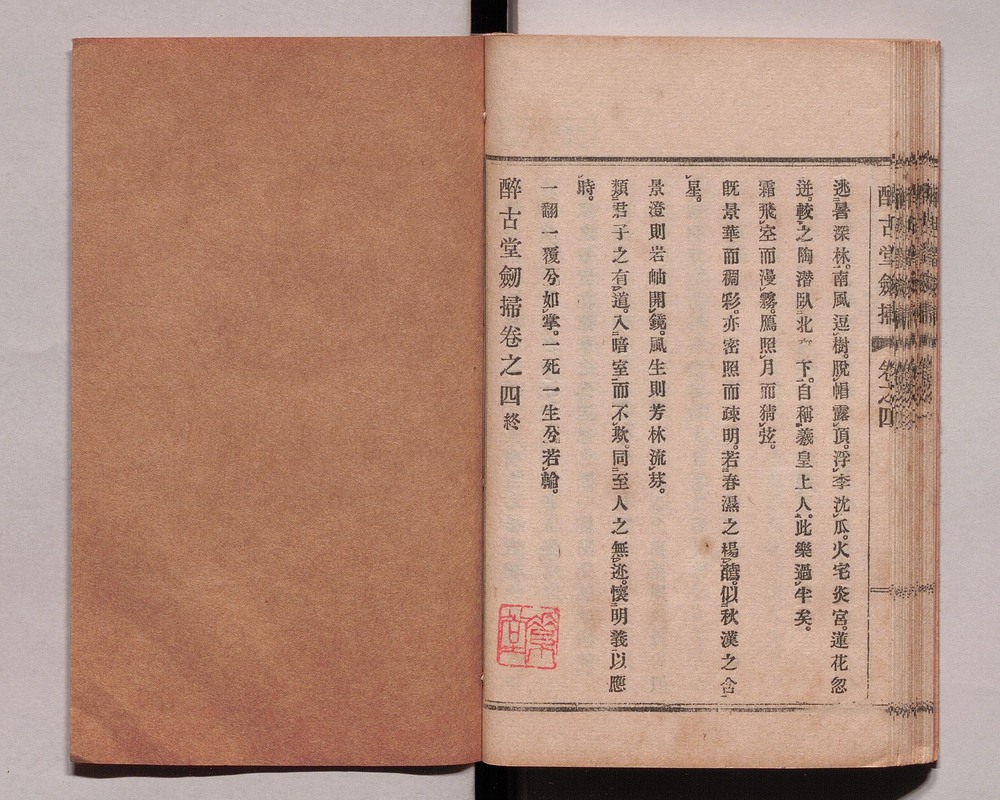 醉古堂劒掃 卷之四
逃暑深林。南風逗樹。脫帽露頂。浮李沈瓜。火宅炎宮。蓮花忽
迸。較之陶潜臥北 下。自稱羲皇上人。此樂過半矣。
霜飛空而漫霧。鴈照月而猜弦。
旣景華而稠彩。亦密照而疎明。若春濕之楊 。似秋漢之含
星。
景澄則岩岫開鏡。風生則芳林流芬。
類君子之有道。入暗室而不欺。同至人之無迹。懷明義以應
時。
一翻一覆兮如掌。一死一生兮若輪。
醉古堂劒掃卷之四終